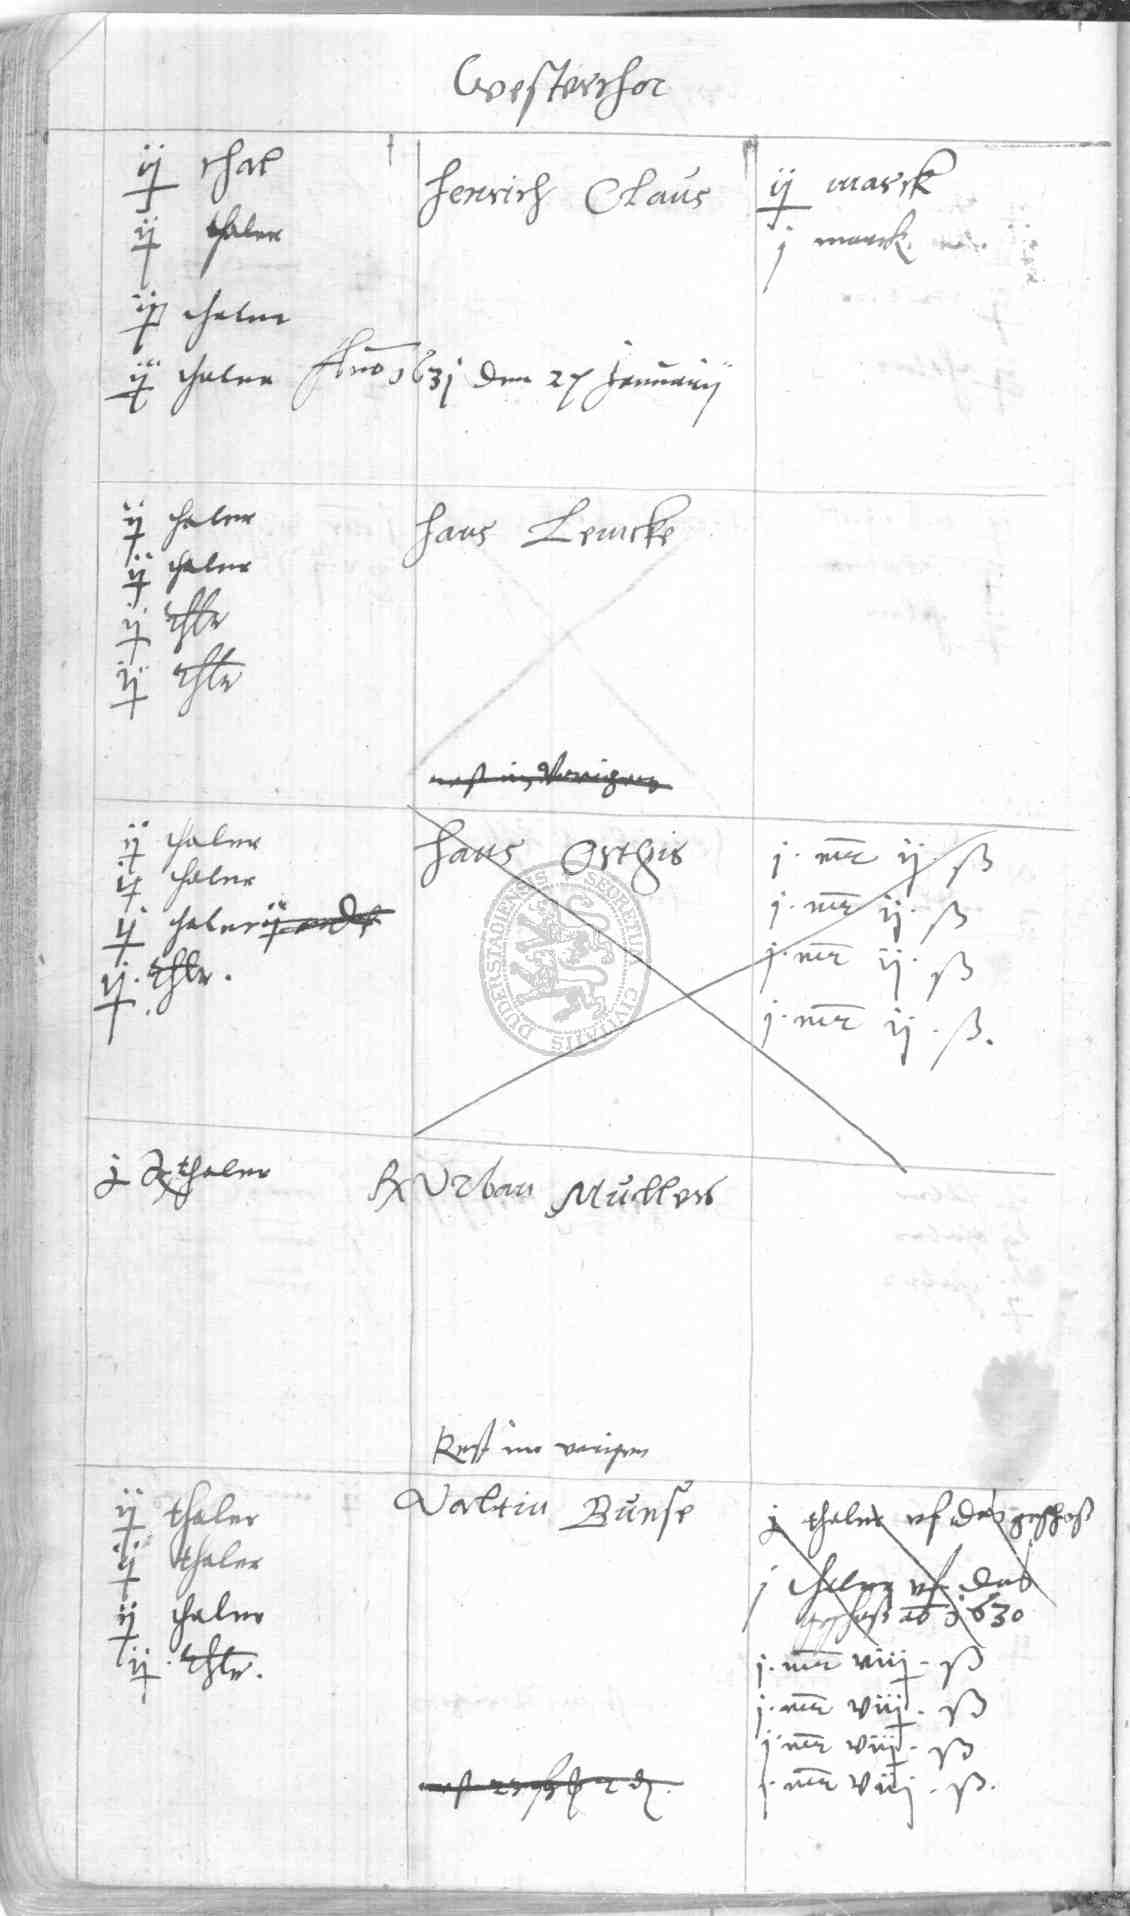 Westerthor
ij thal Henrich Claus ij marck
ij thaler j marck
ij thaler
ij thaler Anno 1631 den 27 Januarij
ij thaler Hans Lemcke
ij thaler
ij thlr
ij thlr
rest im Vorigen
ij thaler Hans Orthgis j. mr ij. ß
ij thaler j. mr ij. ß
ij thaler ij j. mr ij. ß
ij. thlr. j. mr ij. ß.
SECRETUM CIVITATIS DUDERSTADIENSIS
j thaler Urban Mullers
Rest im vorigen
ij thaler Valtin Bunse j thaler uf das geschoß
ij thaler j thaler uf das
ij thaler geschoß ao 1630
ij. thlr. j. mr viij. ß
j. mr viij. ß
j. mr viij. ß
rest j. mr viij. ß.